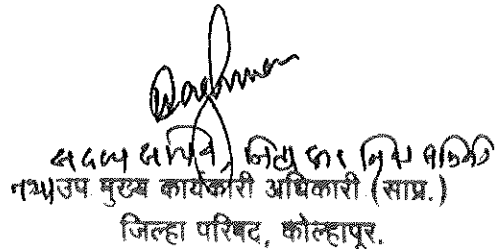 सदस्य सचिव, जिल्हा निवड समिती
तथा उप मुख्य कार्यकारी अधिकारी (साप्र.)
जिल्हा परिषद, कोल्हापूर.